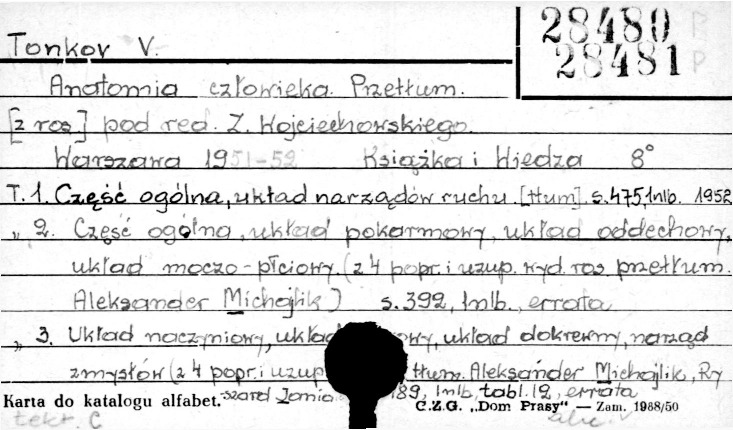 28480 P
28481 P
Tonkov V.
Anatomia człowieka. Przetłum.
[z ros] pod red. Z. Wojciechowskiego.
Warszawa 1951-52 Książka i Wiedza 8°
T. 1. Część ogólna, układ narządów ruchu. [tłum] s.475, 1nlb. 1952
„ 2. Część ogólna, układ pokarmowy, układ oddechowy,
układ moczo-płciowy. (z 4 popr. i uzup. wyd. ros przetłum.
Aleksander Michajlik) s. 392, 1nlb., errata
„ 3. Układ naczyniowy, układ układ dokrewny, narząd
zmysłów (z 4 popr. i uzup tłum. Aleksander Michajlik, Ry
szard Jania 89, 1nlb, tabl. 12, errata
Karta do katalogu alfabet. C.Z.G. „Dom Prasy" — Zam. 1988/50
tekt. C